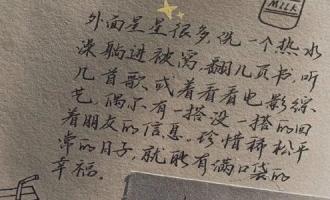 外面星星很多,洗一个热水
澡躺进被窝,翻几页书,听
几首歌,或着看看电影综
艺,偶尔有一搭没一搭的回
着朋友的信息。珍惜稀松平
常的日子,就能有满口袋的
幸福。
MILK